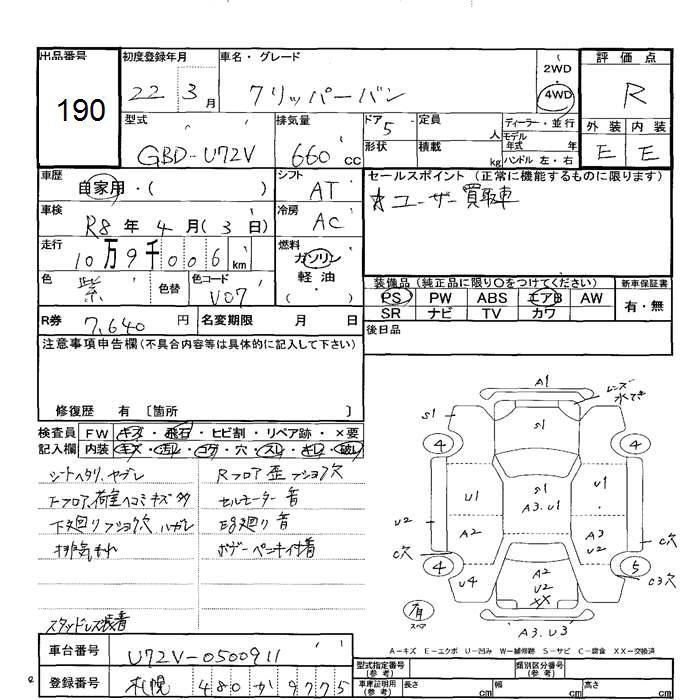 出品番号 初度登録年月 車名・グレード 2WD 4WD 評価点
190 22 3月 クリッパーバン R
型式 GBD-U72V 排気量 660cc ドア形状 5 定員 人 積載 kg ディーラー・並行 モデル年式 年 ハンドル 左・右 外装 内装
E E
車歴 自家用・( ) シフト AT セールスポイント (正常に機能するものに限ります)
☆ユーザー買取車
車検 R8年4月(3日) 冷房 AC
走行 10万9千006km 燃料 ガソリン 軽油 ( )
色 紫 色替 色コード V07 装備品 (純正品に限り〇をつけてください) 新車保証書
PS PW ABS エアB AW 有・無
SR ナビ TV カワ
R券 7,640円 名変期限 月 日 後日品
注意事項申告欄(不具合内容等は具体的に記入して下さい)
修復歴 有 〔箇所 〕
検査員記入欄 FW キズ・飛石・ヒビ割・リペア跡・×要
内装 キズ・汚レ・コゲ・穴・スレ・キレ・破レ
シートヘタリ、ヤブレ Rフロア歪 フショク穴
Fフロア、荷室ヘコミキズ多 セルモーター音
下廻りフショク穴 ハガレ
排気もれ ボデーペンキ付着
スタッドレス装着
A1
レンズ水でき
S1 S1
4 4
U1 S1 A3.U1 U1
U2 A2 A3 U2
C穴 C穴
4 5
U4 A2 U2 XX C3穴
有 スペア
A3.U3
A-キズ E-エクボ U-凹み W-補修跡 S-サビ C-腐食 XX-交換済
車台番号 U72V-0500911 型式指定番号(参考) 類別区分番号(参考)
登録番号 札幌 480 か 9775 車庫証明用(参考) 長さ cm 幅 cm 高さ cm